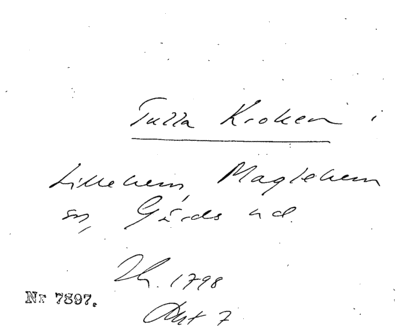 Tulla Kroken i
Lillehem, Maglehem
sn, Gärds hd.
Ih. 1798
Akt 7
Nr 7897.